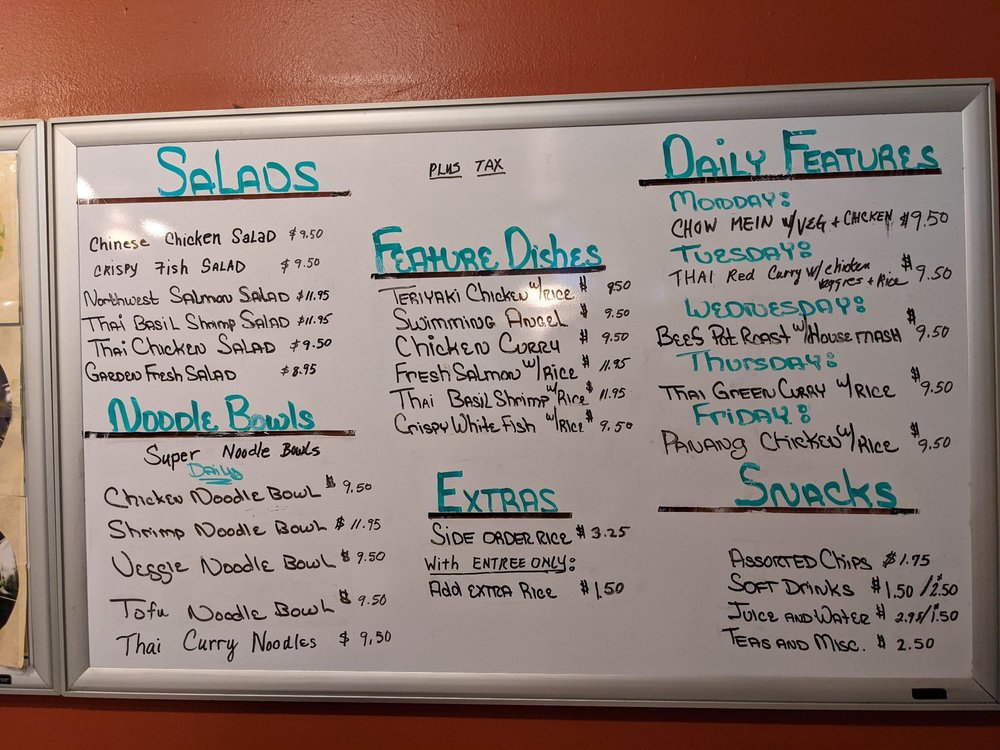 SALADS
Chinese Chicken SALAD $9.50
CRISPY Fish SALAD $9.50
Northwest SALMON SALAD $11.95
THAI BASIL Shrimp SALAD $11.95
Thai Chicken SALAD $9.50
GARDEN FRESH SALAD $8.95
NOODLE BOWLS
Super Noodle Bowls
DAILY
Chicken Noodle Bowl $9.50
Shrimp Noodle Bowl $11.95
Veggie Noodle Bowl $9.50
Tofu Noodle Bowl $9.50
Thai Curry Noodles $9.50
PLUS TAX
FEATURE Dishes
TERIYAKI Chicken w/RICE $9.50
SWIMMING ANGEL $9.50
CHICKEN CURRY $9.50
FRESH SALMON w/RICE $11.95
THAI BASIL Shrimp w/RICE $11.95
CRISPY WHITE FISH w/RICE $9.50
EXTRAS
SIDE ORDER RICE $3.25
With ENTREE ONLY:
Add EXTRA Rice $1.50
DAILY FEATURES
MONDAY:
CHOW MEIN W/VEG + CHICKEN $9.50
TUESDAY:
THAI Red Curry w/ chicken veggies + Rice $9.50
WEDNESDAY:
BEEF POT ROAST w/HOUSE MASH $9.50
THURSDAY:
THAI GREEN CURRY w/RICE $9.50
FRIDAY:
PANANG CHICKEN w/RICE $9.50
SNACKS
ASSORTED Chips $1.75
SOFT DRINKS $1.50/$2.50
JUICE AND WATER $2.95/$1.50
TEAS AND MISC. $2.50